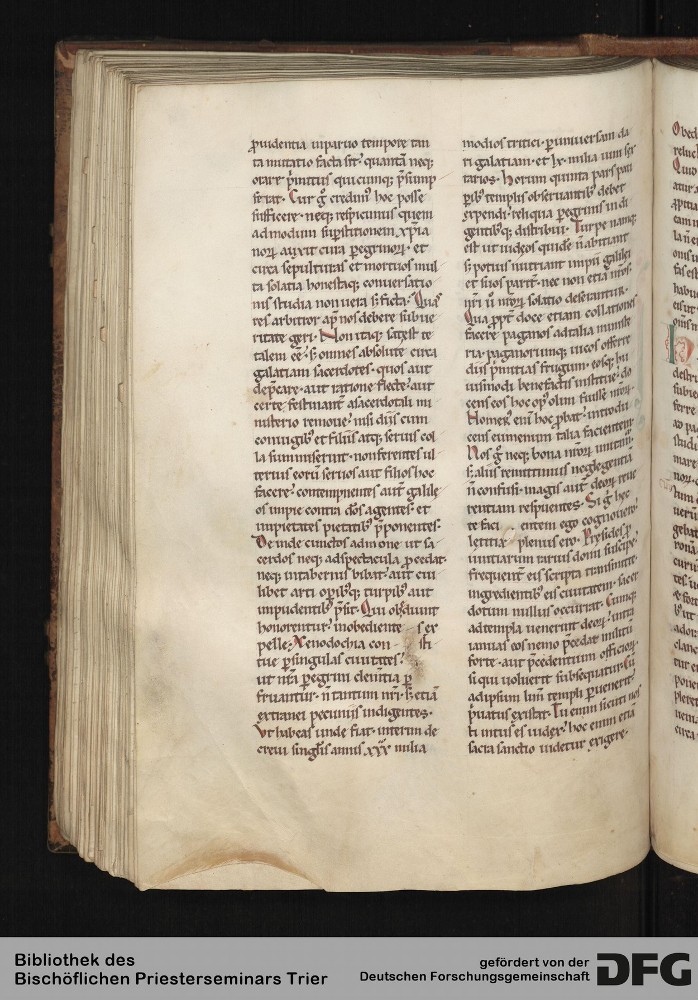 ꝓuidentia inparuo tempore tan
ta mutatio facta sit· quantā neq;
orare p̄mitus quicumq; p̄sump
serat· Cur g̊ credim᷒ hoc posse
sufficere· neq; respicimus quem
admodum sup̱stitionem xp̄ia
noꝝ auxit cura peregrinoꝝ· et
circa sepulturas et mortuos mul
ta solatia honestaq; conuersatio
nis studia non uera s; ficta· Quas
res arbitror ap̄ nos debere sub ue
ritate geri· Non itaq; sat est te
talem eē· s; omnes absolute circa
galatiam sacerdotes· quos aut
dep̄care· aut ratione flecte· aut
certe festinant̄ asacerdotali mi
nisterio remoue· nisi diis cum
coniugib; et filiis atq; seruis col
la summiserint· non ferentes ul
terius eorū seruos aut filios hoc
facere· contempnentes aut̄ galile
os impie contra dōs agentes· et
impietates pietatib; p̄ponentes·
Deinde cunctos admone ut sa
cerdos neq; adspectacula p̱cedat·
neq; intabernis bibat· aut cui
libet arti operib;q; turpib; aut
impudentib; p̄sit· Qui obediunt
honorentur· inobediente s ex
pelle· Xenodochia con sti
tue p̱ singulas ciuitates·
ut nr̄a peregrini clem̄tia p̱
fruantur· n̄ tantum nr̄i· s; etiā
extranei pecuniis indigentes·
Vt habeas unde fiat· interim de
creui singlis annis xxx milia
modios tritici· p̱ uniuersam da
ri galatiam· et lx· milia uini sex
tarios· horum quinta pars pau
perib; templis obseruantib; debet
expendi· reliqua peregrinis indi
gentib;q; distribui· Turpe namq;
est ut iudęos quidē n̄ abiciant
s; potius nutriant impii galilei
et suos parit̄· nec non etia nr̄os·
nr̄i ū nr̄oꝝ solatio deserantur·
Qua ꝓpt̄ doce etiam collationes
facere paganos adtalia ministe
ria· paganorumq; uicos offerre
diis primitias frugum· eosq; hu
iusmodi benefactis institue· do
cens eos hoc op᷒ olim fuisse nr̄oꝝ·
Homer᷒ eni hoc ꝓbat· introdu
cens eumenium talia facientem·
Nos g̊ neq; bona nr̄orū imitam̄·
s; aliis remittimus neglegentia
n̄ confusi· magis aut̄ deoꝝ reue
rentiam respuentes· Si g̊ hec
te faci entem ego cognouero·
letitia plenus ero· Presides ꝓ
uintiarum rarius domi suscipe·
frequent̄ eis scripta transmitte·
ingredientib; eis ciuitatem· sacer
dotum nullus occurrat· Cumq;
ad templa uenerint deoꝝ· intra
ianuas eos nemo p̄cedat militū
forte· aut precedentium officioꝝ·
si qui uoluerit subsequatur· Cū
adipsum limī templi p̱uenerit·
p̱uatus existat· Tu enim sicuti nos
ti intus es iudex· hoc enim etiā
sacra sanctio uidetur exigere·
Bibliothek des
Bischöflichen Priesterseminars Trier
gefördert von der
Deutschen Forschungsgemeinschaft
DFG